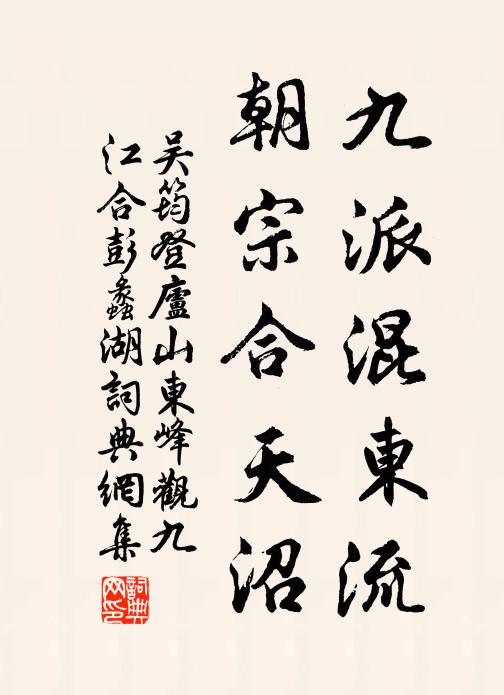 九派混東流
朝宗合天沼
吴筠登廬山東峰觀九
江合彭蠡湖詞典網集
詞典网印